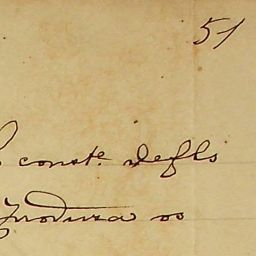 51
const.e de fls
produza os